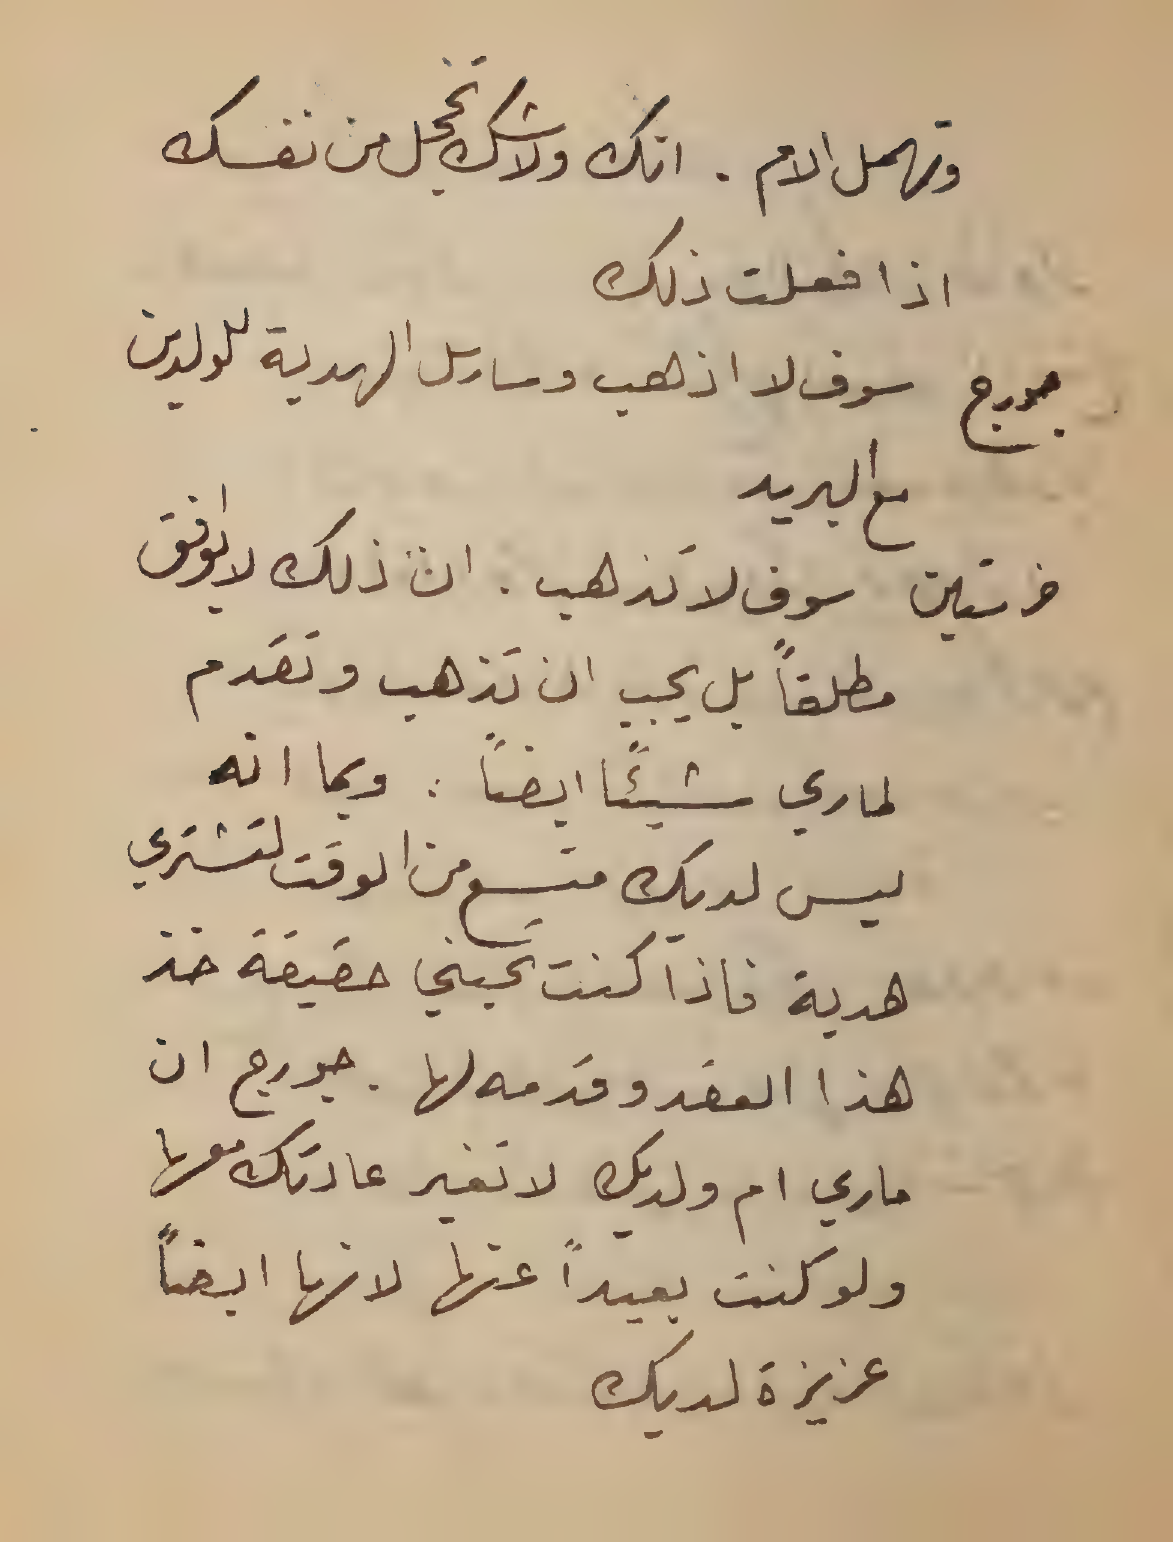 وتهمل الام . انك ولاشك تخجل من نفسك
اذا فعلت ذلك
جورج سوف لا اذهب وسارسل الهدية للولدين
مع البريد
خرستين سوف لا تذهب . ان ذلك لايوافق
مطلقاً بل يجب ان تذهب وتقدم
لماري شيئًا ايضاً . وبما انه
ليس لديك متسع من الوقت لتشتري
هدية فاذا كنت تحبني حقيقة خذ
هذا العقد وقدمه لها . جورج ان
ماري ام ولديك لا تغير عادتك معها
ولو كنت بعيداً عنها لانها ايضاً
عزيزة لديك